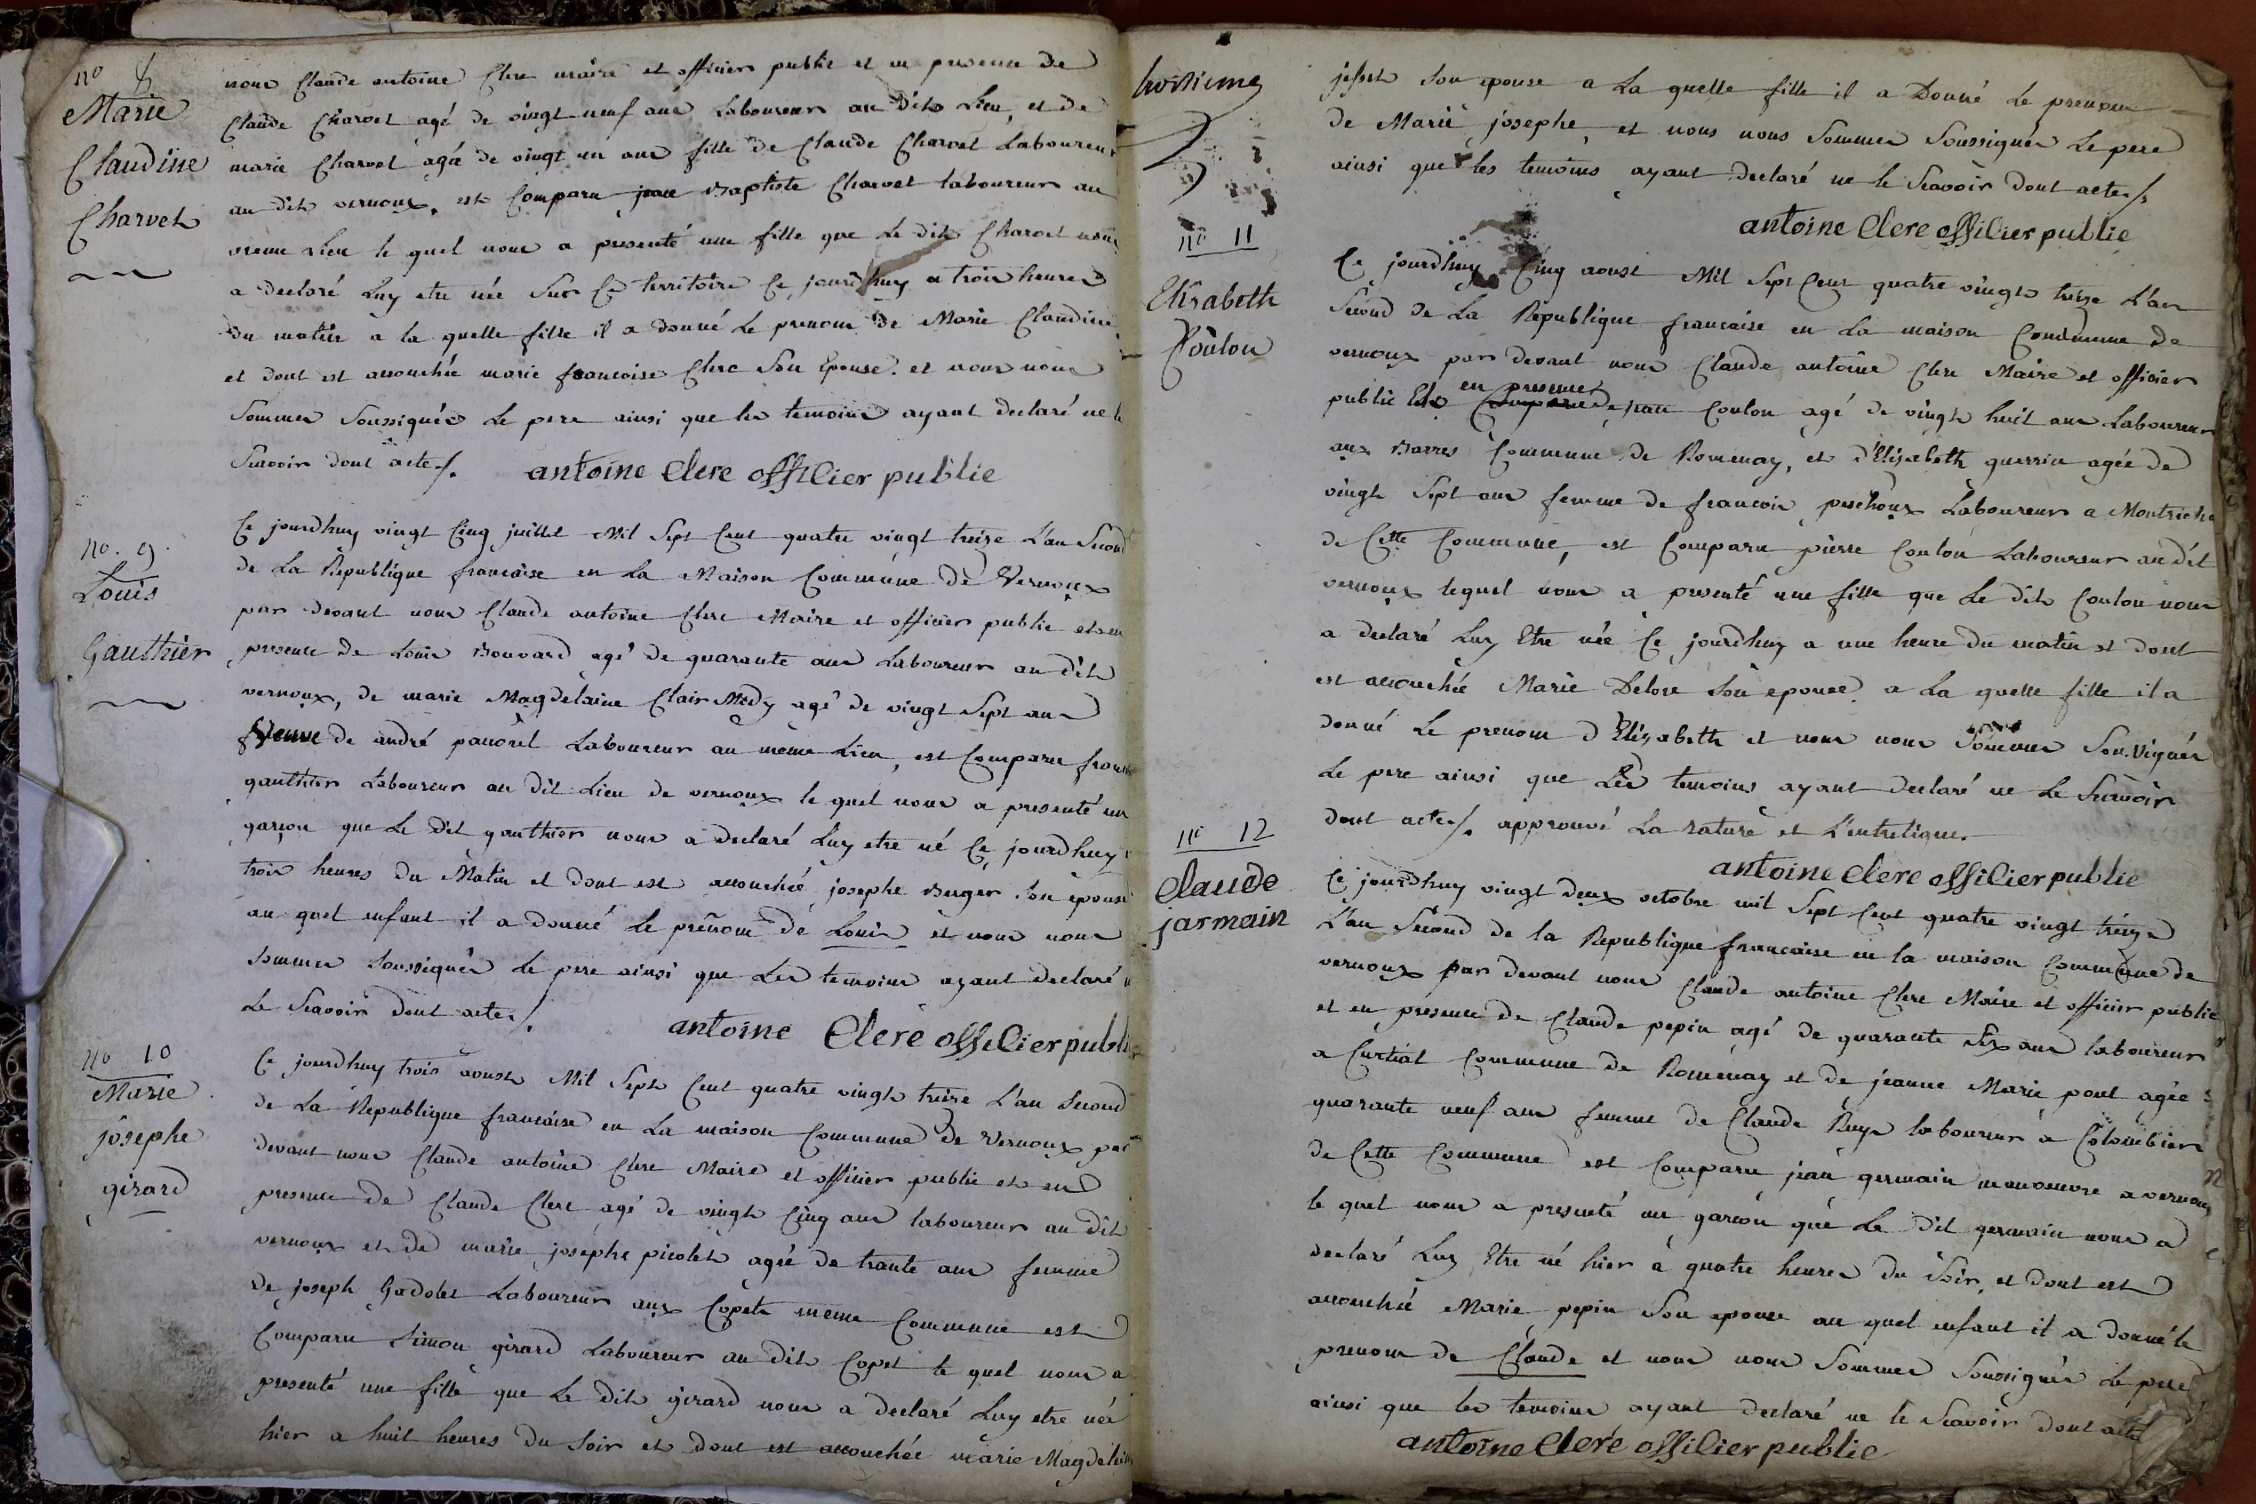 no 8
Marie
Claudine
Charvet
nous Claude antoine Clerc maire et officier public et en presence de
Claude Charvet agé de vingt neuf ans Laboureur au dit Lieu, et de
marie Charvet agée de vingt un ans fille de Claude Charvet Laboureur
au dit vernoux, est Comparu jean Baptiste Charvet laboureur au
meme Lieu le quel nous a presenté une fille que Le dit Charvet nous
a declaré Luy etre née Sur Ce territoire Ce jourdhuy a trois heures
du matin a la quelle fille il a donné Le prenom de Marie Claudine
et dont est accouchée marie francoise Clerc Son Epouse. et nous nous
Sommes Soussignés Le pere ainsi que les temoins ayant declaré ne le
Scavoir dont acte/.
antoine Clere offilier publie
no. 9.
Louis
Gauthier
Ce jourdhuy vingt Cinq juillet Mil Sept Cent quatre vingt treize L'an Second
de La Republique francaise en La Maison Commune de Vernoux
par devant nous Claude antoine Clerc Maire et officier public et en
presence de Louis Bouvard agé de quarante ans Laboureur au dit
vernoux, de marie Magdelaine Clair Medy agé de vingt Sept ans
veuve de andré pauvrel Laboureur au meme Lieu, est Comparu
gauthier Laboureur au dit Lieu de vernoux le quel nous a presenté un
garcon que Le Dit gauthier nous a declaré Luy etre né Ce jourdhuy
trois heures du Matin et dont est accouchée josephe Berger Son epouse
au quel enfant il a donné le prenom de Louis et nous nous
Sommes Soussignés Le pere ainsi que Les temoins ayant declaré
Le Scavoir dont acte/.
antoine Clere offilier publie
no 10
Marie
josephe
girard
Ce jourdhuy trois aoust Mil Sept Cent quatre vingt treize L'an Second
de La Republique francaise en La maison Commune de Vernoux par
devant nous Claude antoine Clerc Maire et officier public et en
presence de Claude Clerc agé de vingt Cinq ans laboureur au dit
vernoux et de marie josephe picolet agée de trante ans femme
de joseph Gadolet Laboureur aux Copets meme Commune est
Comparu Simon girard Laboureur au dit Copet le quel nous a
presenté une fille que Le dit girard nous a declaré Luy etre née
hier a huit heures du Soir et dont est accouchée marie
troisieme
Son epouse a La quelle fille il a Donné Le prenom
de Marie josephe et nous nous Sommes Soussignés Le pere
ainsi que les temoins ayant declaré ne le Scavoir dont acte/.
antoine Clere offilier publie
no 11
Elisabeth
Coulon
Ce jourdhuy Cinq aoust Mil Sept Cent quatre vingt treize L'an
Second de La Republique francaise en La maison Commune de
vernoux par devant nous Claude antoine Clerc Maire et officier
public Et en presence de jean Coulon agé de vingt huit ans Laboureur
aux Barres Commune de Romenay, et d'Elisabeth guerrin agée de
vingt Sept ans femme de francois pachoux Laboureur a
de Cette Commune, est Comparu pierre Coulon Laboureur au dit
vernoux lequel nous a presenté une fille que Le dit Coulon nous
a declaré Luy Etre née Ce jourdhuy a une heure du matin et dont
est accouchée Marie Delore Son epouse a La quelle fille il a
donné Le prenom d'Elizabeth et nous nous Sommes Soussignés
Le pere ainsi que Les temoins ayant declaré ne Le Scavoir
dont acte/. approuvé La rature et L'entreligne.
antoine Clere offilier publie
no 12
Claude
jarmain
Ce jourdhuy vingt deux octobre mil Sept Cent quatre vingt treize
L'an Second de la Republique francaise en la maison Commune de
vernoux par devant nous Claude antoine Clerc Maire et officier public
et en presence de Claude pepin agé de quarante Six ans laboureur
a Curtiat Commune de Romenay et de jeanne Marie pont agée
quarante neuf ans femme de Claude Ruys laboureur a Colombier
de Cette Commune est Comparu jean germain manoeuvre a vernoux
le quel nous a presenté un garcon que Le dit germain nous a
declaré Luy Etre né hier a quatre heures du Soir, et dont est
accouchée Marie pepin Son epouse au quel enfant il a donné le
prenom de Claude et nous nous Sommes Soussignés Le pere
ainsi que les temoins ayant declaré ne le Scavoir dont acte
antoine Clere offilier publie